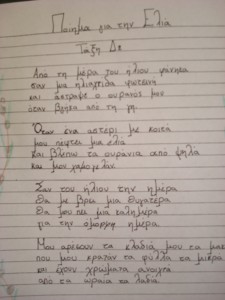 Ποίημα για την Ελιά
Τάξη Δ2
Από τη μέρα του ήλιου φάνηκα
σαν μια ηλιαχτίδα φωτεινή
και άστραψε ο ουρανός μου
όταν βγήκα από τη γη.
Όταν ένα αστέρι με κοιτά
μου πέφτει μια ελιά
και βλέπω τα ουράνια από ψηλά
και μου χαμογελάν.
Σαν του ήλιου την ημέρα
θα με βρει μια θυγατέρα
θα μου πει μια καλημέρα
για την όμορφη ημέρα
Μου αρέσουν τα κλαδιά μου τα
που μου κρατάν τα φύλλα τα μικρά
και έχουν χρώματα ανοιχτά
από τα ωραία τα λάδια.